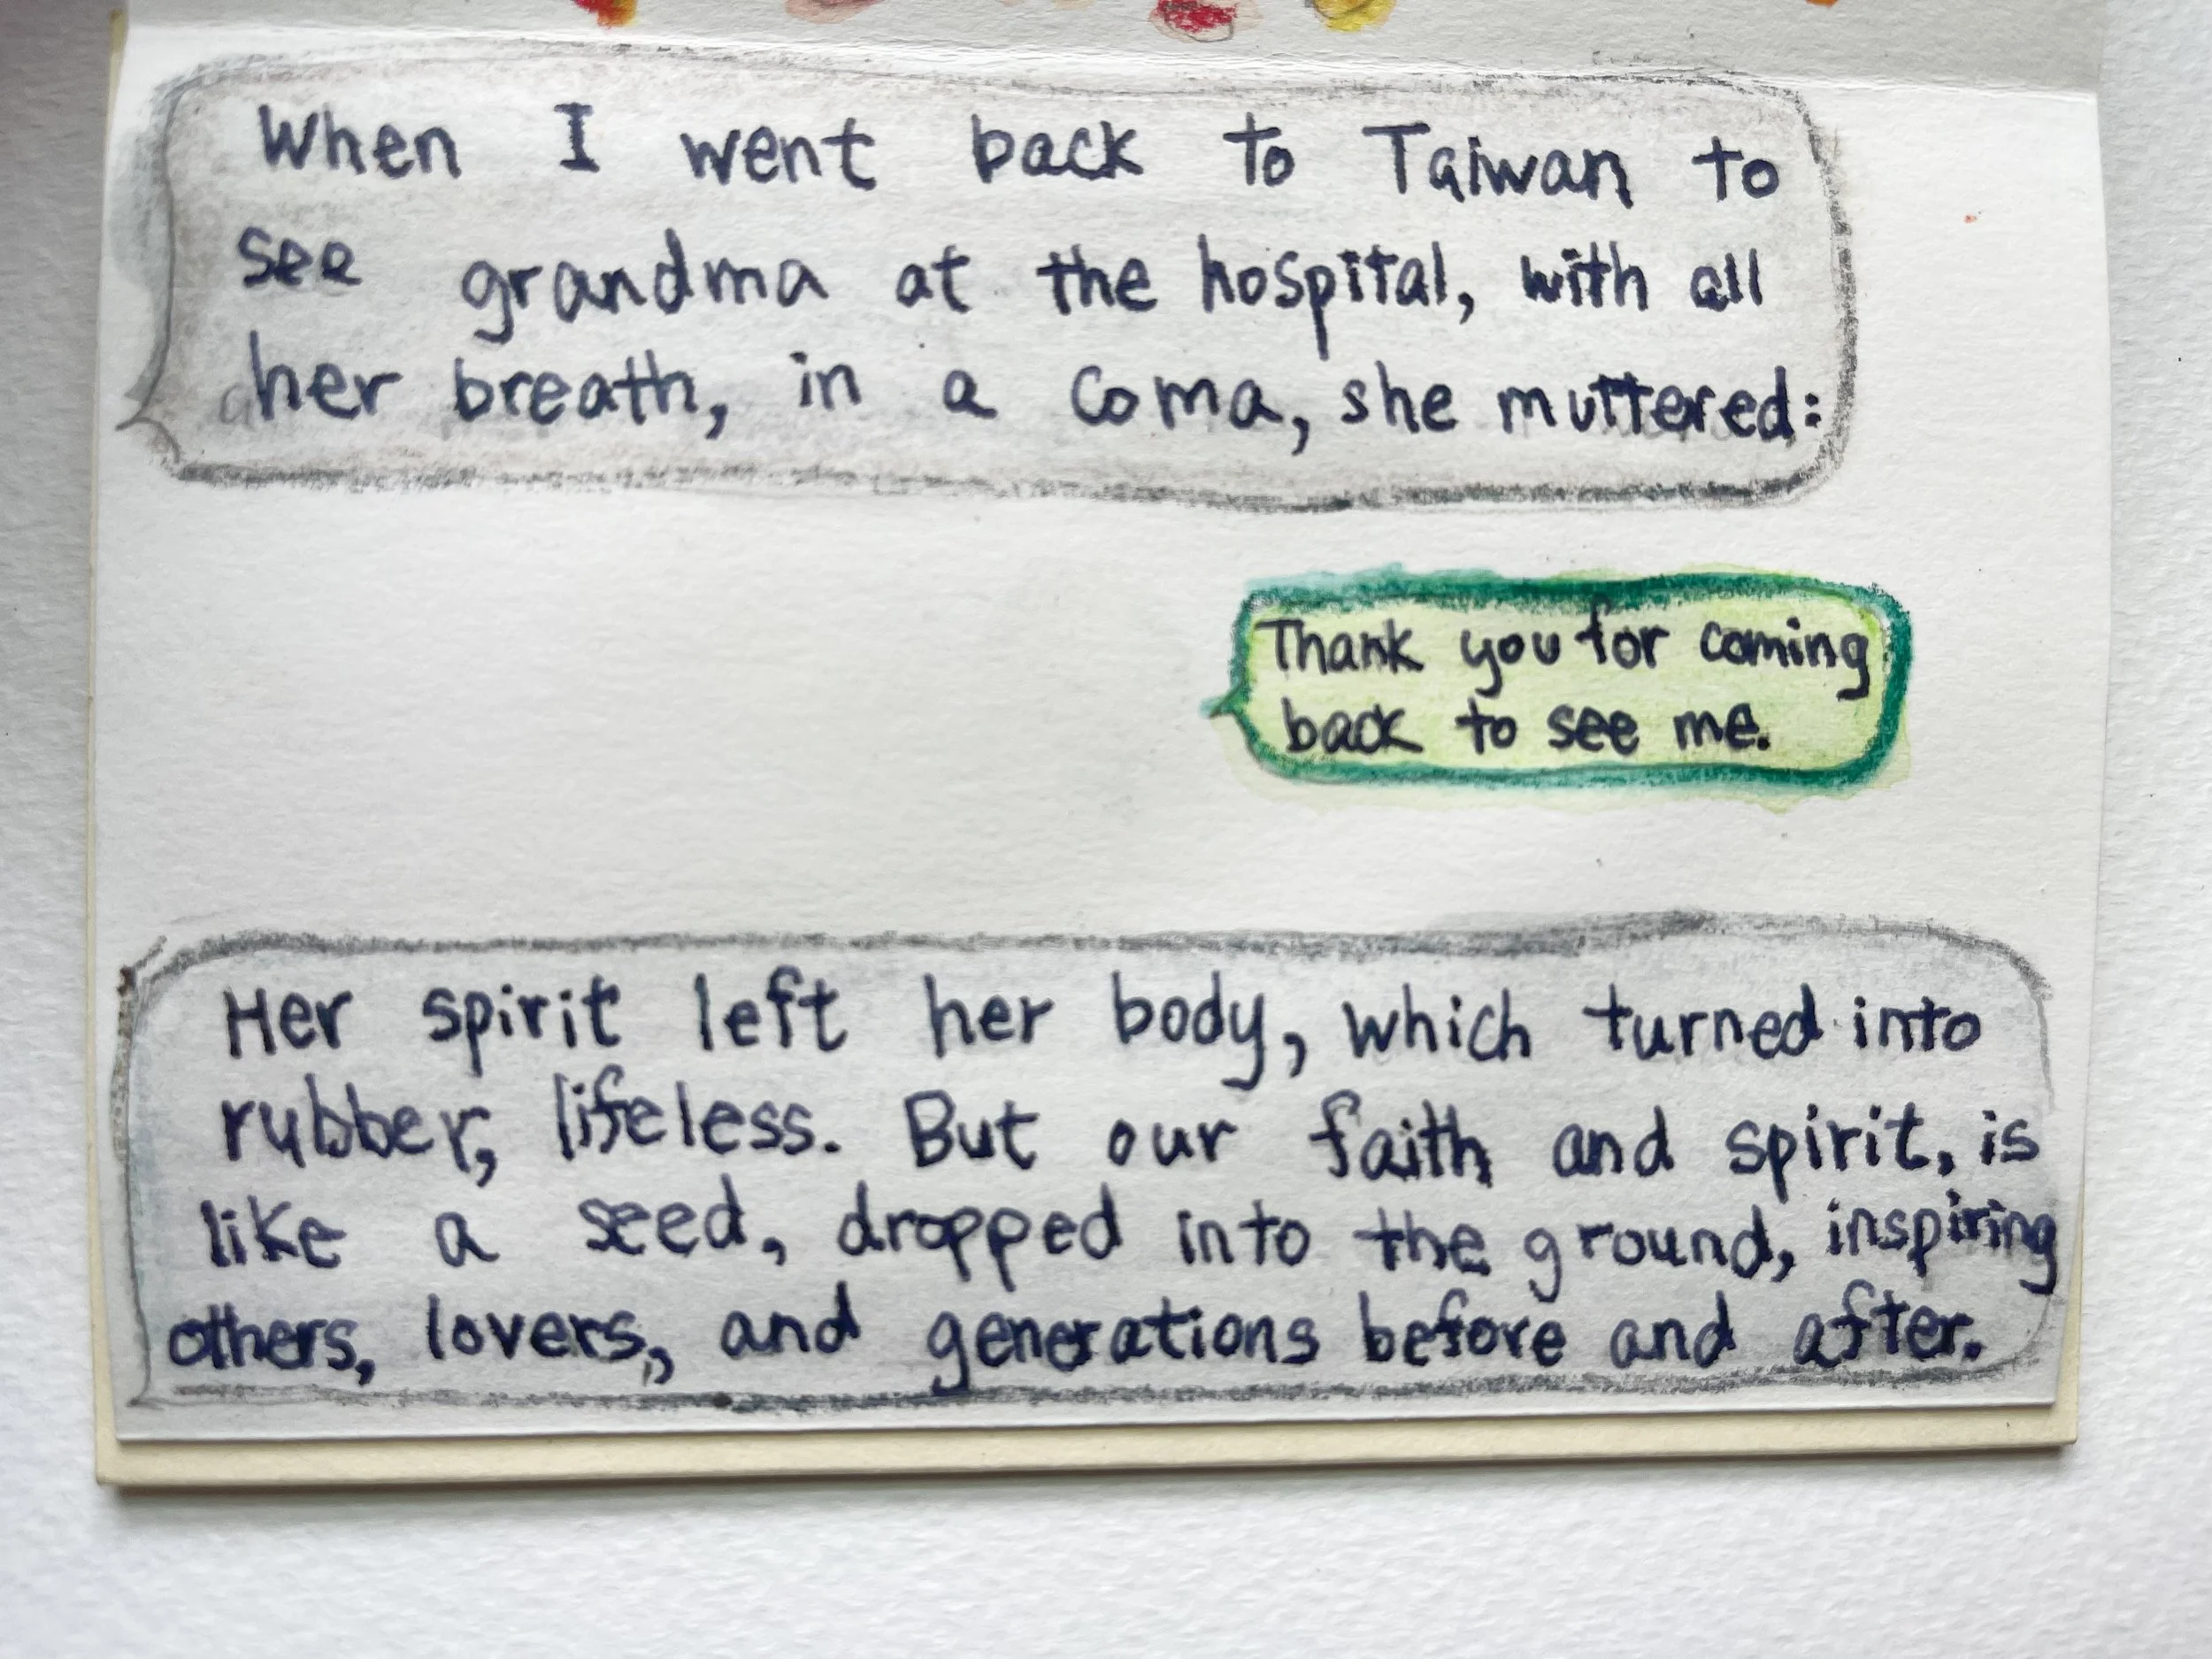 When I went back to Taiwan to
see grandma at the hospital, with all
her breath, in a coma, she muttered:
Thank you for coming
back to see me.
Her spirit left her body, which turned into
rubber, lifeless. But our faith and spirit, is
like a seed, dropped into the ground, inspiring
others, lovers, and generations before and after.